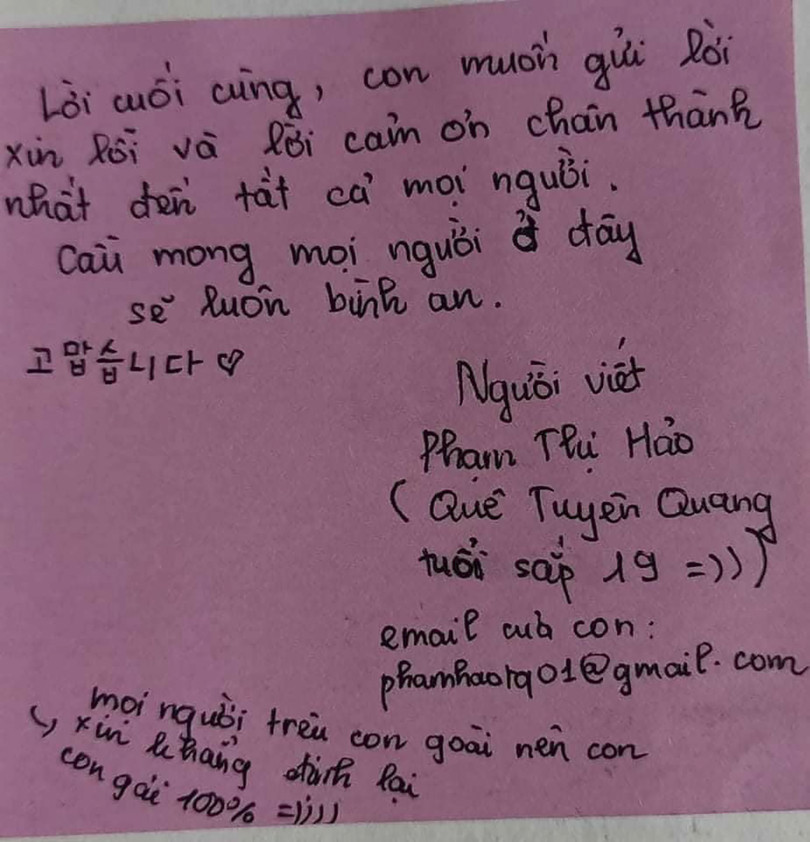 Lời cuối cùng, con muốn gửi lời
xin lỗi và lời cảm ơn chân thành
nhất đến tất cả mọi người.
Cầu mong mọi người ở đây
sẽ luôn bình an.
고맙습니다 ♡
Người viết
Phạm Thị Hảo
( Quê Tuyên Quang
tuổi sắp 19 =)))
email của con:
phamhaotq01@gmail.com
mọi người trêu con goài nên con
↳ xin khẳng định lại
con gái 100% =))))